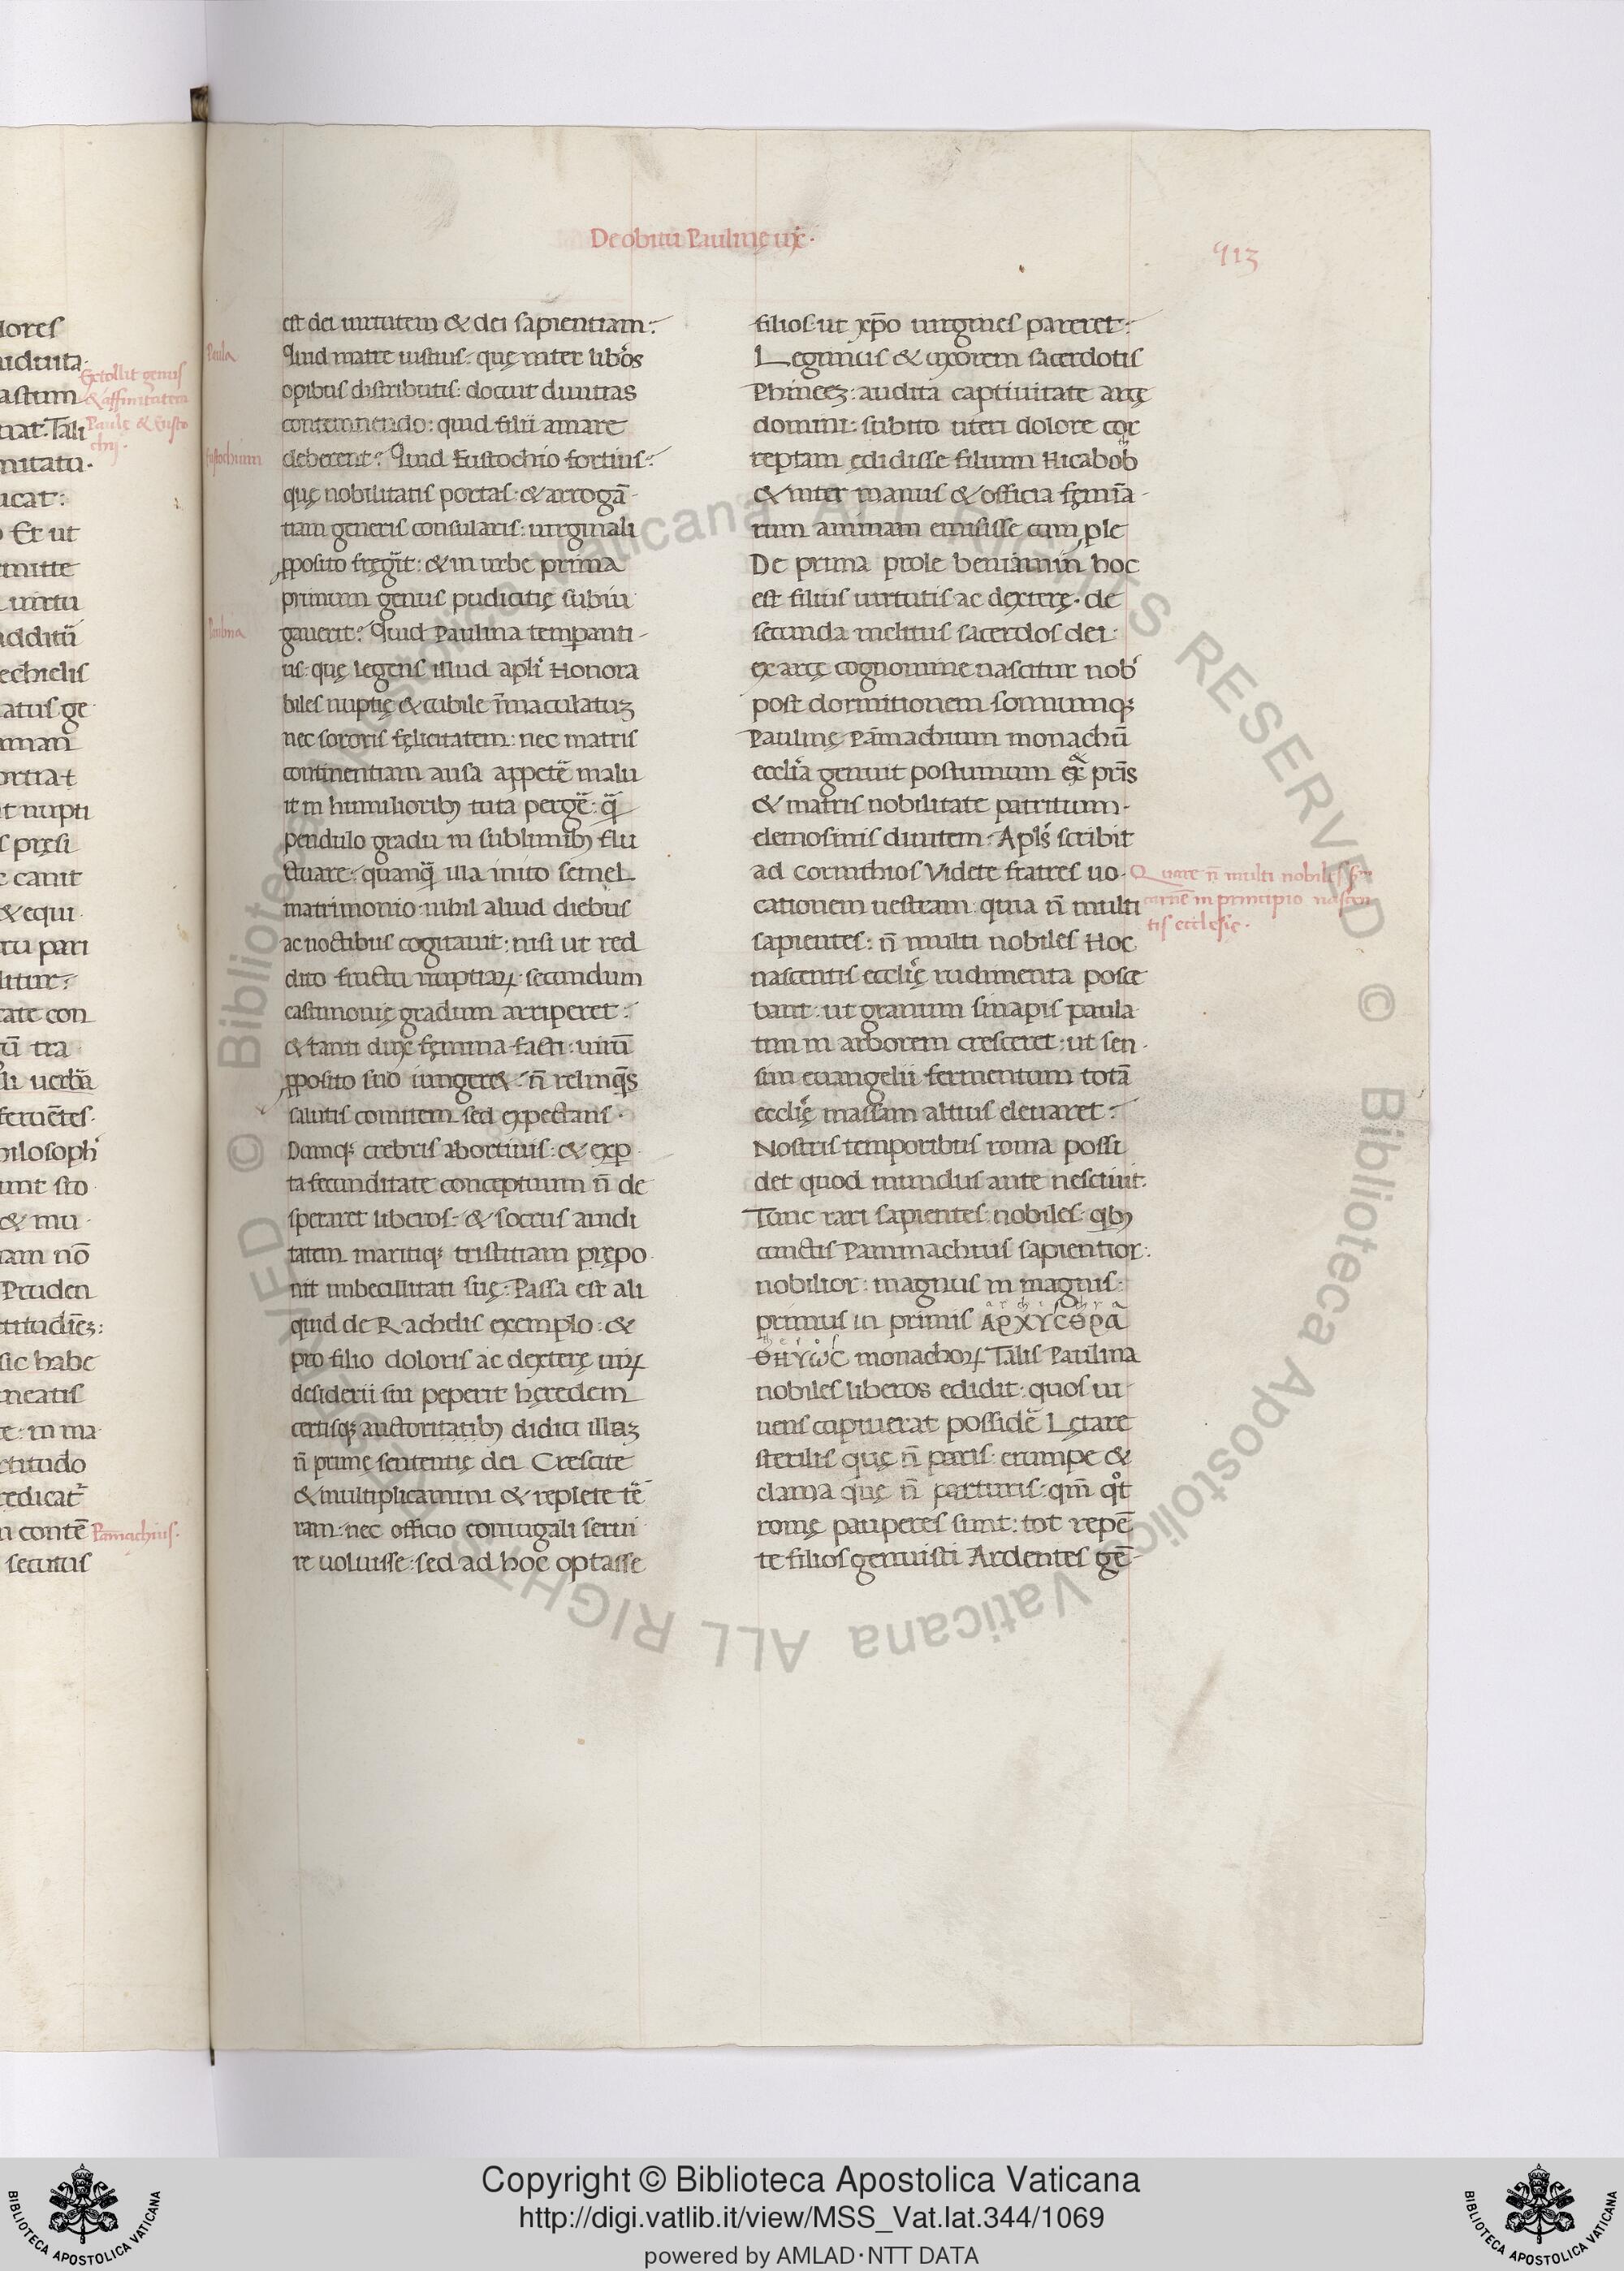 De obitu Paulinę uxͦ·
513
lores
uiduita·
astum
tiat. Tali
nitatu·
icat:
Et ut
mitte
uirtu
additū
echielis
atus ge
man̄
ortia t
t nupti
s pręsi
c canit
& equi·
tu pari
litur:
tate con
ū tra
li uerba
feruētes·
hilosophꝰ
unt sto
& mu·
am nō
Pruden
titudiēȝ:
sic habe
neatis
te: in ma·
titudo
redicat͛
n contē
secutus
Extollit genus
& affinitatem
Paulę & Eusto
chij·
Pāmachius·
Paula
Eustochium
Paulina
est dei uirtutem & dei sapientiam:
Quid matre iustius: quę inter lib͛os
opibus distributis: docuit diuitias
contemnendo: quid filii amare
deberent? Quid Eustochio fortius:
quę nobilitatis portas: & arrogā-
tiam generis consularis: uirginali
ꝓposito fregit: & in urbe prima
primum genus pudicitię subiu
gauerit? Quid Paulina temperanti-
us: quę legens illud apl̄i Honora
biles nuptię & cubile īmaculatuȝ
nec sororis fęlicitatem: nec matris
continentiam ausa appetē͛ malu
it in humilioribꝫ tuta pergē͛: q̄͛
pendulo gradu in sublimibꝫ flu
ctuare: quanq̄͛ illa inito semel
matrimonio nihil aliud diebus
ac noctibus cogitauit: nisi ut red
dito fructu nuptiaꝝ: secundum
castimonię gradum arriperet:
& tanti dux femina facti: uirū
ꝓposito suo iungere&: n̄ relinq̄͛s
salutis comitem sed expectans·
Dumqꝫ crebris abortiuis: & expͤ
ta fecunditate conceptuum n̄ de
speraret liberos: & socrus auidi
tatem maritiqꝫ tristitiam prępo
nit imbecillitati suę: Passa est ali
quid de Rachelis exemplo: &
pro filio doloris ac dexterę uiꝝ
desiderii sui peperit hęredem
certisqꝫ auctoritatibꝫ didici illaȝ
n̄ prime sententię dei Crescite
& multiplicamini & replete tē͛
ram: nec officio coniugali serui
re uoluisse: sed ad hoc optasse
filios: ut xp̄o uirgines pareret:
Legimus & uxorem sacerdotis
Phineeȝ: audita captiuitate arcę
domini: subito uteri dolore cor
reptam edidisse filium Hicabob
& inter manus & officia femīa-
rum animam emisisse cum ꝓle
De prima prole beniamin hoc
est filius uirtutis ac dexterę· de
secunda inclitus sacerdos dei:
ex arcę cognomine nascitur nobꝰ
post dormitionem somnumqꝫ
Paulinę Pāmachium monachū
eccl̄ia genuit postumum ex pr̄is
& matris nobilitate patritium·
elemosinis diuitem: Apl͛s scribit
ad corinthios Videte fratres uo·
cationem uestram: quia n̄ multi
sapientes: n̄ multi nobiles Hoc
nascentis eccl̄ię rudimenta posce
bant: ut granum sinapis paula
tim in arborem cresceret: ut sen·
sim euangelii fermentum totā
eccl̄ię massam altius eleuaret:
Nostris temporibus roma possi
det quod mundus ante nesciuit:
Tunc rari sapientes nobiles: qͥbꝫ
cunctis Pammachius sapientior:
nobilior: magnus in magnis:
primus in primis ΑΡΧΥϹΘΡΑ
ΘΗΥωϹ monachoꝝ Talis Paulina
nobiles liberos edidit: quos ui-
uens cupiuerat possidē͛ Lętare
sterilis quę n̄ paris: erumpe &
clama quę n̄ parturis: qm̄ qͦt
romę pauperes sunt: tot repē
te filios genuisti Ardentes gē-
Quare n̄ multi nobiles s̄m
carnē in principio nascen
tis ecclesię·
Copyright © Biblioteca Apostolica Vaticana
http://digi.vatlib.it/view/MSS_Vat.lat.344/1069
powered by AMLAD·NTT DATA
BIBLIOTECA APOSTOLICA VATICANA
BIBLIOTECA APOSTOLICA VATICANA
© Biblioteca Apostolica Vaticana ALL RIGHTS RESERVED © Biblioteca Apostolica Vaticana ALL RIGHTS RESERVED